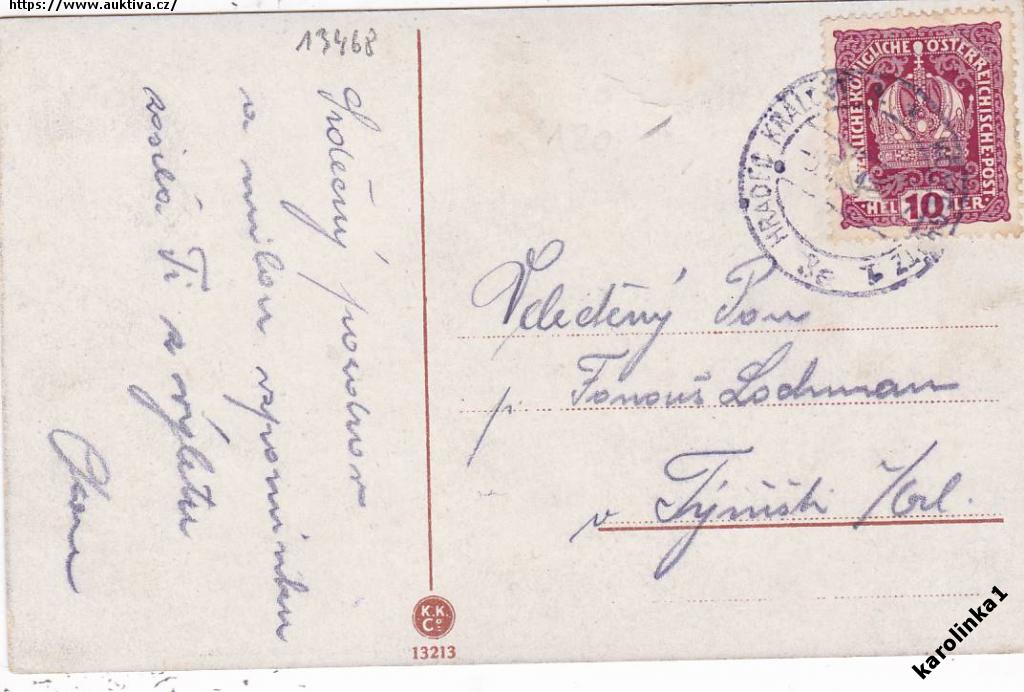 https://www.auktiva.cz/
13468
Srdečný pozdrav
a milou vzpomínku
zasílá Ti z výletu
KAISERLICHE KÖNIGLICHE ÖSTERREICHISCHE POST
HELLER
10
HRADEC KRÁLOVÉ
Velectěný Pan
p. Lochman
v Týništi n/Orl.
K.K.
Co.
13213
karolinka1